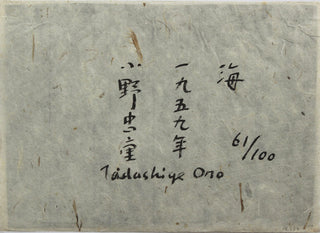 海
一九五九年
小野忠重
61/100
Tadashige Ono